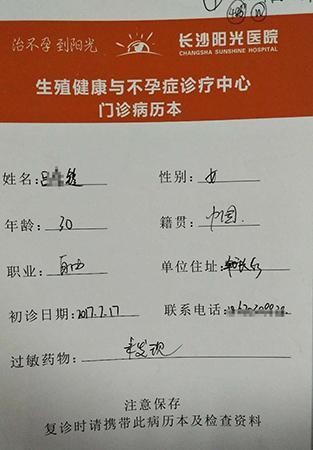 治不孕 到阳光 长沙阳光医院
CHANGSHA SUNSHINE HOSPITAL
生殖健康与不孕症诊疗中心
门诊病历本
姓名: 性别: 女
年龄: 30 籍贯: 中国
职业: 自由 单位住址:
初诊日期: 2017.7.17 联系电话:
过敏药物: 未发现
注意保存
复诊时请携带此病历本及检查资料